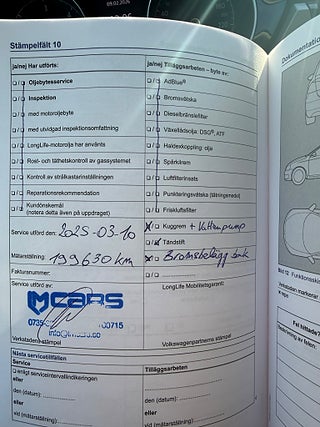 09.02.2026
Stämpelfält 10
Dokumentation
ja/nej Har utförts:
ja/nej Tilläggsarbeten – byte av:
Oljebytesservice
AdBlue®
Inspektion
Bromsvätska
med motoroljebyte
Dieselbränslefilter
med utvidgad inspektionsomfattning
Växellådsolja: DSG®, ATF
LongLife-motorolja har använts
Haldexkoppling olja
Rost- och täthetskontroll av gassystemet
Tändstift
Kontroll av strålkastarinställningen
Luftfilterinsats
Reparationsrekommendation
Punkteringsvätska (tätningsmedel)
Kundönskemål
(notera detta även på uppdraget)
Friskluftsfilter
Service utförd den: 2025-03-10
Kuggrem + Vattenpump
Tändstift
Mätarställning: 199630 km
Bromsbelägg bak
Fakturanummer:
Service utförd av:
LongLife Mobilitetsgaranti:
CARS
Verkstadens stämpel
Volkswagenpartnerns stämpel
Nästa servicetillfällen
Service
Tilläggsarbeten:
enligt serviceintervallindikeringen
eller
den (datum):
den (datum):
eller
eller
vid (mätarställning)
vid (mätarställning)